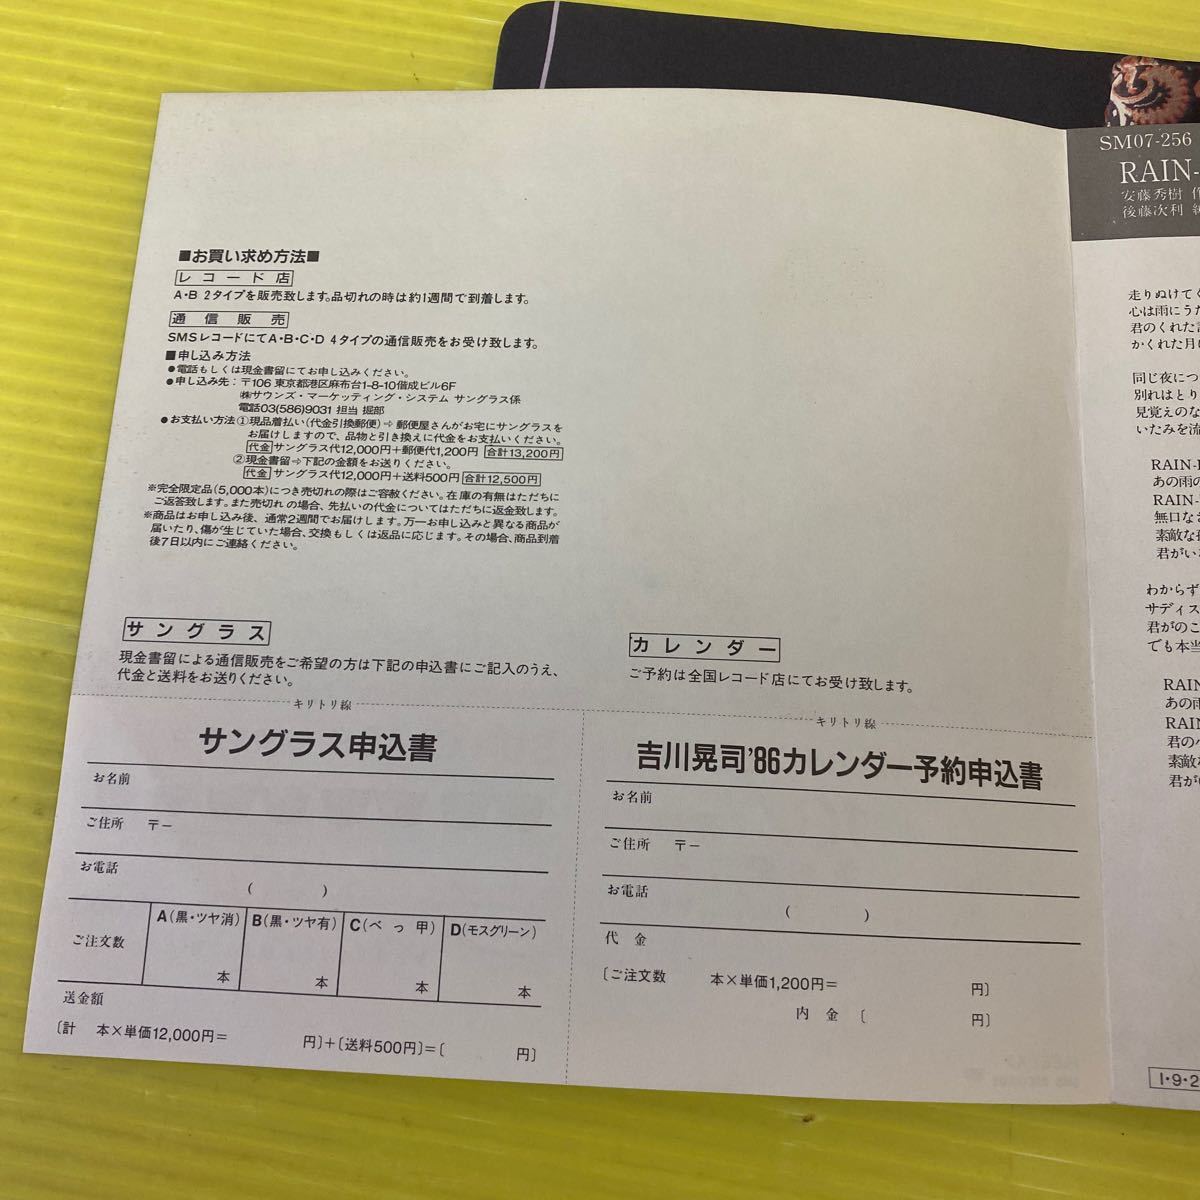 ■お買い求め方法■
レコード店
A・B 2タイプを販売致します。品切れの時は約1週間で到着します。
通信販売
SMSレコードにてA・B・C・D 4タイプの通信販売をお受け致します。
■申し込み方法
●電話もしくは現金書留にてお申し込みください。
●申し込み先：〒106 東京都港区麻布台1-8-10偕成ビル6F
㈱サウンズ・マーケッティング・システム サングラス係
電話03(586)9031 担当 掘部
●お支払い方法①現品着払い(代金引換郵便)⇨郵便屋さんがお宅にサングラスを
お届けしますので、品物と引き換えに代金をお支払いください。
代金 サングラス代12,000円＋郵便代1,200円 合計13,200円
②現金書留⇨下記の金額をお送りください。
代金 サングラス代12,000円＋送料500円 合計12,500円
※完全限定品(5,000本)につき売切れの際はご容赦ください。在庫の有無はただちに
ご返答致します。また売切れの場合、先払いの代金についてはただちに返金致します。
※商品はお申し込み後、通常2週間でお届けします。万一お申し込みと異なる商品が
届いたり、傷が生じていた場合、交換もしくは返品に応じます。その場合、商品到着
後7日以内にご連絡ください。
サングラス
現金書留による通信販売をご希望の方は下記の申込書にご記入のうえ、
代金と送料をお送りください。
キリトリ線
サングラス申込書
お名前
ご住所 〒−
お電話
( )
ご注文数
A(黒・ツヤ消) B(黒・ツヤ有) C(べっ甲) D(モスグリーン)
本 本 本 本
送金額
〔計 本×単価12,000円＝ 円〕＋〔送料500円〕＝〔 円〕
カレンダー
ご予約は全国レコード店にてお受け致します。
キリトリ線
吉川晃司'86カレンダー予約申込書
お名前
ご住所 〒−
お電話
( )
代金
〔ご注文数 本×単価1,200円＝ 円〕
内金〔 円〕
SM07-256
RAIN-
安藤秀樹 作
後藤次利 編
走りぬけてく
心は雨にうた
君のくれた言
かくれた月
同じ夜に
別れはとり
見覚えのな
いたみを流
RAIN-
あの雨の
RAIN-
無口な
素敵な
君がい
わからず
サディス
君がのこ
でも本当
RAIN-
あの雨
RAIN-
君の
素敵な
君が
1・9・2